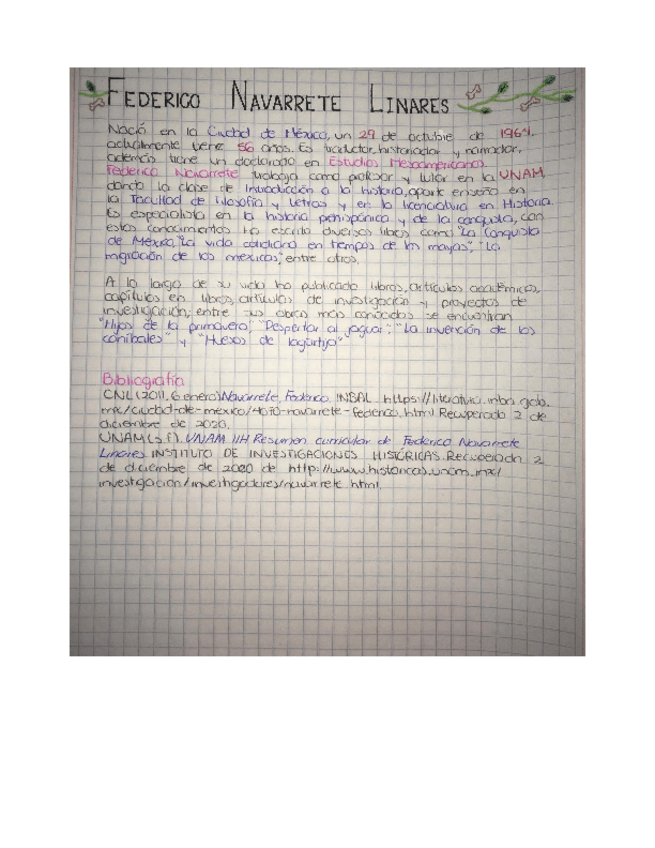 FEDERICO NAVARRETE LINARES
Nació en la Ciudad de México, un 29 de octubre de 1964,
actualmente tiene 56 años. Es traductor, historiador y narrador,
además tiene un doctorado en Estudios Mesoamericanos.
Federico Navarrete trabaja como profesor y tutor en la UNAM
dando la clase de Introducción a la historia, aparte enseña en
la Facultad de Filosofía y Letras y en la licenciatura en Historia.
Es especialista en la historia prehispánica y de la conquista, con
estos conocimientos ha escrito diversos libros como "La Conquista
de México, "La vida cotidiana en tiempos de los mayas", "La
migración de los mexicas", entre otros.
A lo largo de su vida ha publicado libros, artículos académicos,
capítulos en libros, artículos de investigación y proyectos de
investigación; entre sus obras más conocidas se encuentran
"Hijos de la primavera", "Despertar al jaguar", "La invención de los
caníbales" y "Huesos de lagartija"
Bibliografía
CNL (2011, 6 enero) Navarrete, Federico. INBAL https://literatura.inba.gob.
mx/ciudad-de-mexico/4010-navarrete-federico.html Recuperado 2 de
diciembre de 2020.
UNAM (s.f). UNAM IIH Resumen curricular de Federico Navarrete
Linares INSTITUTO DE INVESTIGACIONES HISTÓRICAS. Recuperado 2
de diciembre de 2020 de http://www.historicas.unam.mx/
investigacion/investigadores/navarrete.html.